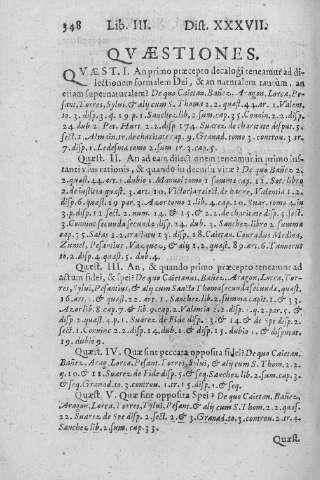 348 Lib. III. Dist. XXXVII.
QVÆSTIONES.
QVÆST. I. An primo præcepto decalogi teneamur ad di-
lectionem formalem Dei, & an naturalem tantùm, an
etiam supernaturalem? De quo Caiet. Bañez, Aragon, Lorca, Pe-
sant. Torres, Sylui, & alij cum S. Thom. 2. 2. quæst. 44. ar. 1. Valent.
10. 3. disp. 3. q. 19 p 1. Sanchez lib. 2. sum. cap. 35. Coninc. 2. 2. disp.
24. dub. 2. Pet. Hurt. 2. 2. disp 174. Suarez de charitate disput. 5.
sect. 1. Almain. tr. de charitate cap. 9. Granad. tomo 3. controu. 3. tr.
7. disp. 1. Ledesma tomo 2. sum tr. 3. cap. 5.
Quæst. II. An ad eam dilectionem teneamur in primo ins-
tanti vsus rationis, & quando in decursu vitæ? De quo Bañez 2.
2. quæst. 44. ar. 1. dubio 1. Manuel tomo 1 summa cap. 12. Soto libro
2. de iustitia quæst. 3. art. 10. Victoria relect. de
disp. 6. quæst. 19 par. 3. Azor tomo 1. lib. 9. cap. 4. Suar. tomo 4. in
3. p. disp. 15 sect. 2. num. 14. & 15. & 2. 2. de charitate disp. 5. sect.
3. Coninc secunda secundæ disp. 24. dub. 3. Sanchez libro 2 summa
cap. 35. Salas 1. 2. tractatu 13. disp. 28. Caietan. Conradus Medina,
Zumel, Pesantius, Vazquez, & alij 1. 2. quæst. 89. art. 6. Tannerus
10. 2. disp. 4. quæst. 5. dub. 4.
Quæst. III. An, & quando primo præcepto teneamur ad
actum fidei, & spei? De quo Caietanus, Bañez, Aragon, Lorca, Tor-
res, Sylui, Pesantius, & alij cum Sancto Thoma secunda secundæ, quæst.
16. art. 1. & quæst. 22. art. 1. Sanchez lib. 2. summa capit. 1. & 33.
Azor lib. 8 cap. 7. & lib. 9. cap. 2. Valencia 2. 2. disp. 1. q. 2. par. 5. &
disp 2. quæst. 9. p. 1. Suarez de Fide disp. 13. & 14. & de Spe disp. 2.
sect. 1. Coninc 2. 2. disp. 14. dub. 1. & disp. 15. dubio 1. & disputat.
19. dubio 9.
Quæst. IV. Quæ sint peccata opposita fidei? De quo Caietan.
Bañez, Arag. Lorca, Torres, Sylui, & alij cum S. Thom. 2. 2.
q. 10. & 11 Suarez de Fide disp. 5. & seq. Sanchez lib. 2. sum. cap. 3.
& seq. Granad. 10. 3. controu. 1. tr. 15. disp. 1. & seq.
Quæst. V. Quæ sint opposita Spei? De quo Caietan. Bañez,
Aragon, Lorca, Torres, Sylui, Pesant. & alij cum S. Thom. 2. 2. quæst.
22. Suarez de Spe disp. 2. sect. 2. & 3. Granad. 10. 3. controu. 2. tr. 4.
Sanchez lib. 2. sum. cap. 33.
Quæst.